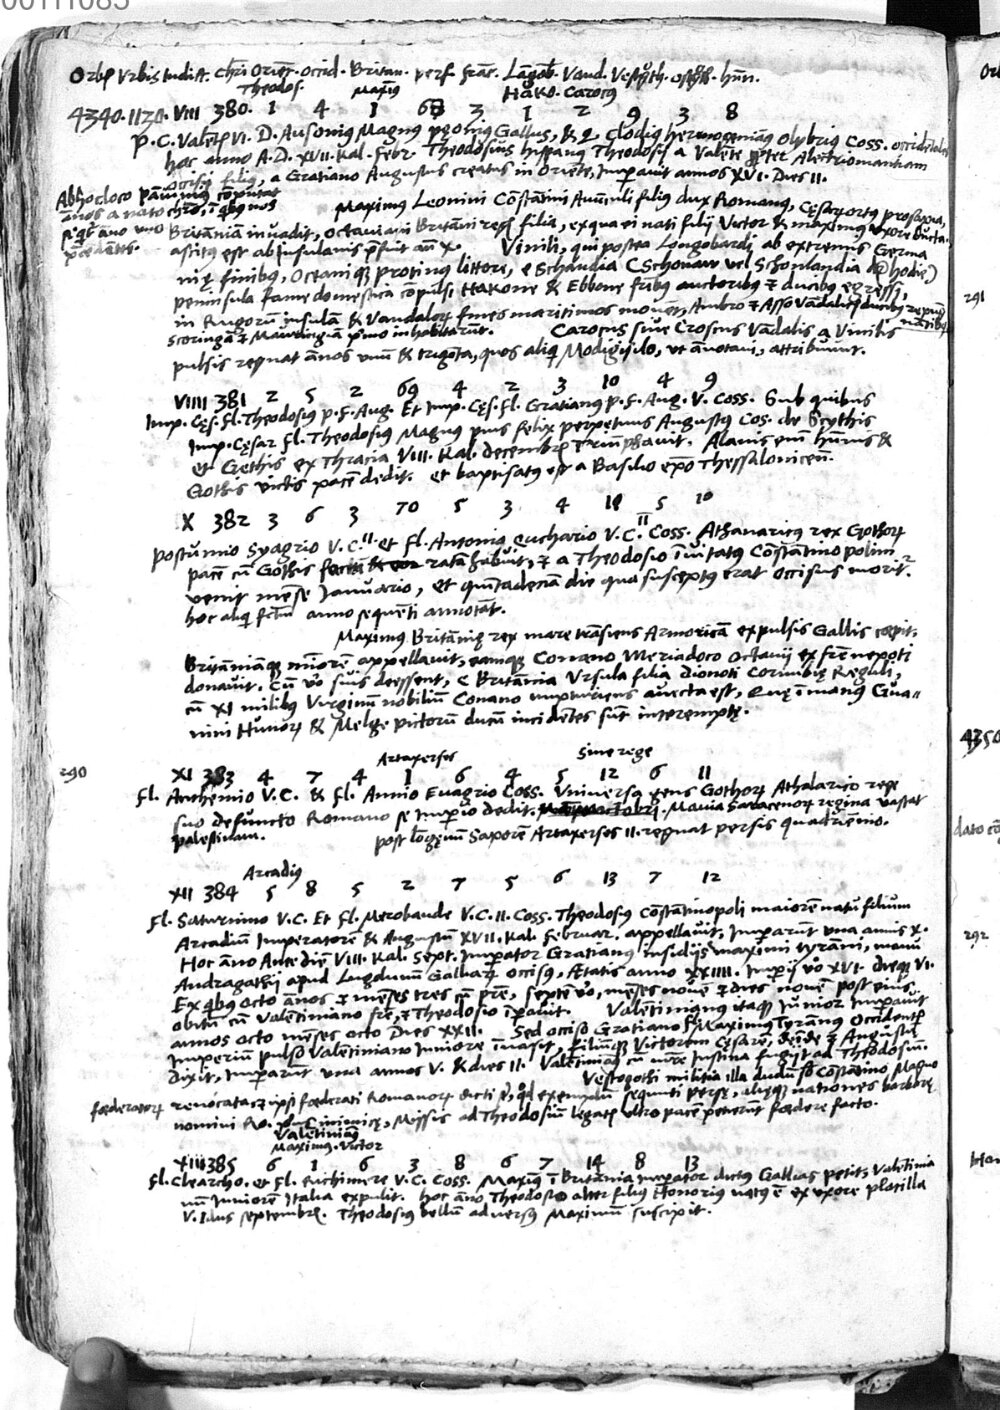 00111083
Orbis Urbis Indict. Chri Orient. Occid. Britan. pers. franc. Lāgob. Vand. Vesgoth. ostgth. hūn.
Theodos. Maxīus HaKo. Carocus
4340. 1130. VIII 380. 1 4 1 68 3 1 2 9 3 8
P. C. Valerius VI. D. Ausonius Magnus Gallus, & Q. Clodius hermogenianus Olybrius Coss. occidentales
hoc anno A. D. XVII. Kal. Febr. Theodosius hispanus Theodosii a Valēte propter Alectriomantiam
occisi filius, a Gratiano Augustus creatus in Oriente, imperavit annos XVI. Dies II.
Ab hoc loco computat
annos a nato chro, ī qbus nos
seqr āno uno
Maximus Leonini Cōstantini Avunculi filius dux Romanus,
Britāniam invadit, Octaviani Britāni regis filia, ex qua ei nati filij Victor & maximus uxore ducta.
ascitus est ab insulanis pfuit ann X. Vinili, qui postea Longobardi ab extremis Germa
nię finibus, Oceani qz protinus littore, e Schandia (Schonaw vel Schonlandia hodie)
peninsula fame domestica cōpulsi HaKone & Ebbone fribus auctoribus & ducibus egressi,
in Rugorū insulā & Vandalorum fines maritimos movent, Ambro & Asso Vandalicis ducibus
Scoringā & Mauringiā primo inhabitarūt. Carocus sive Croscus Vandalis a Vinilis
pulsis regnat ānos unū & trigīta, quos aliqui Modigisilo, ut ānotavi, attribuunt.
291
VIIII 381 2 5 2 69 4 2 3 10 4 9
Imp. Cęs. Fl. Theodosius P. F. Aug. Et Imp. Cęs. Fl. Gratianus P. F. Aug. V. Coss. Sub quibus
Imp. Cęsar Fl. Theodosius Magnus pius felix perpetuus Augustus Cos. de Scythis
et Gethis ex Thracia VIII. Kal. decembris triumphavit. Alanis enī hūnis &
Gothis victis pacē dedit. et baptisatus est a Basilio epō Thessalonicen.
X 382 3 6 3 70 5 3 4 11 5 10
Postumio Syagrio V. C. II et Fl. Antonio Euchario V. C. II Coss. Athanaricus rex Gothorum
pacē cū Gothis ratā habuit, & a Theodosio īvitatus Cōstantinopolim
venit mēse Ianuario, et quītadecia die qua susceptus erat occisus morit.
hoc aliqi fctū anno sequēti annotāt.
Maximus Britānię rex mare trāsiens Armoricā expulsis Gallis cœpit,
Britāniāque minorē appellavit, eamque Conano Meriadoco Octavij ex fre nepoti
donavit. Cū vo suis deessent, e Britānia Ursula filia Dionoti Cornubię Reguli,
cū XI milibus Virginū nobiliū Conano nupturiens avecta est, Quę ī manus Gua=
nini Hunorum & Melgę pictorū ducū incidentes sunt interemptę.
290
Artaxerses Sine rege
XI 383 4 7 4 1 6 4 5 12 6 11
Fl. Anthemio V. C. & Fl. Annio Evagrio Coss. Universa gens Gothorum Athalarico rege
suo defuncto Romano se imperio dedit. Mauia Saracenorum regina vastat
palestinam. post lōgęuum Saporem Artaxerses II. regnat persis quadriennio.
Arcadius
XII 384 5 8 5 2 7 5 6 13 7 12
Fl. Saturnino V. C. Et Fl. Merobaude V. C. II. Coss. Theodosius Cōstātinopoli maiorē natu filium
Arcadium Imperatorē & Augustum XVII. Kal. Februar. appellavit. Imparunt una annis X.
Hoc anno Ante diē VIII. Kal. Sept. Imperator Gratianus insidijs maximi tyrāni, manu
Andragathij apud Lugdunum Galliarum occisus, Ætatis anno XXIIII. Imperij vo XVI. dieque VI.
Ex qbus octo ānos & mēses tres cū pre, septē vo, mēses novē & dies novē post eius
obitū cū Valētiniano fre, & Theodosio īpavit. Valētinianus itaque Iunior imperavit
annos octo mēses octo Dies XXII. Sed occiso Gratiano Maximus Tyrānus Occidentis
Imperium pulso Valētiniano Iuniore īvasit, filiumque Victorem Cesarē, deīde & Augustū
dixit, Imparūt una annos V. & dies II. Valētinianus cū mre Iustina fugijt ad Theodosiū.
Vestogothi militia illa dudum sb Cōstātino Magno
fœderatorum revocata, & ipsi fœderati Romanorum dicti st, qd exemplū sequuti persę, alięque nationes barbarę
nomini Ro. inimicę, Missis ad Theodosiū legatis ultro pacē petierūt fœdere facto.
Valētinianus
Maximus. Victor
XIII 385 6 1 6 3 8 6 7 14 8 13
Fl. Clearcho. et Fl. Richimere V. C. Coss. Maximus ī Britānia imperator dictus Gallias petit, Valētinia
num Iuniorem Italia expulit. hoc āno Theodosio alter filius Honorius natus ē ex uxore placilla
V. Idus septembris. Theodosius bellū adversus Maximum suscipit.
4350
292